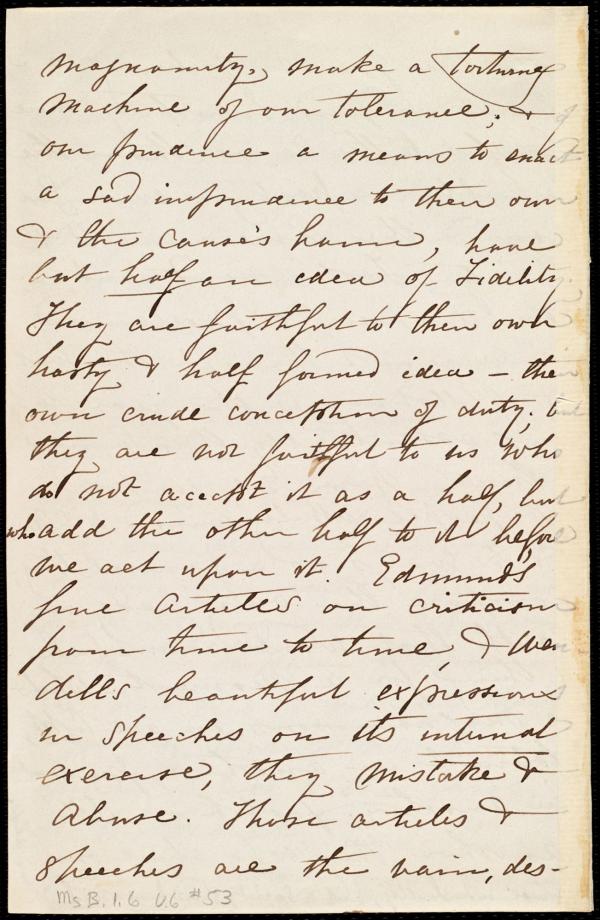 magnanimity, make a torturing
machine of our tolerance, &
our prudence a means to enact
a sad imprudence to their own
& the cause's harm, have
but half an idea of Fidelity.
They are faithful to their own
hasty & half formed idea – their
own crude conception of duty; but
they are not faithful to us who
do not accept it as a half, but
who add the other half to it before
we act upon it. Edmund's
fine articles on criticism
from time to time, & Wen-
dell's beautiful expressions
in speeches on its internal
exercise, they mistake &
abuse. Those articles &
speeches are the vain, des-
Ms B.1.6 v.6 #53